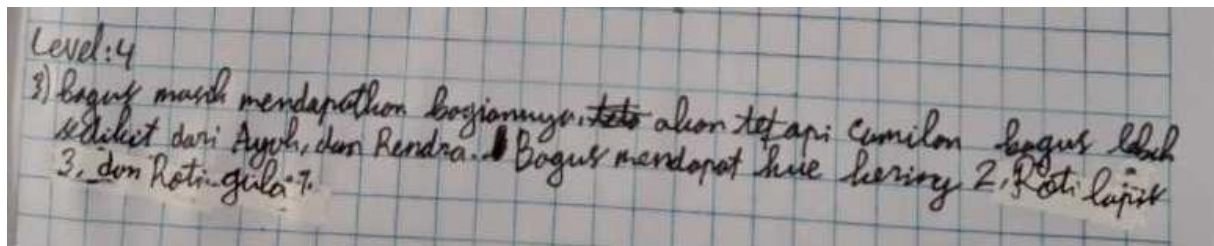 Level:4
3) bagus masih mendapatkan bagiannya, akan tetapi camilan bagus lebih
sedikit dari Ayah, dan Rendra. Bagus mendapat kue kering 2, Roti lapis
3, dan Roti gula